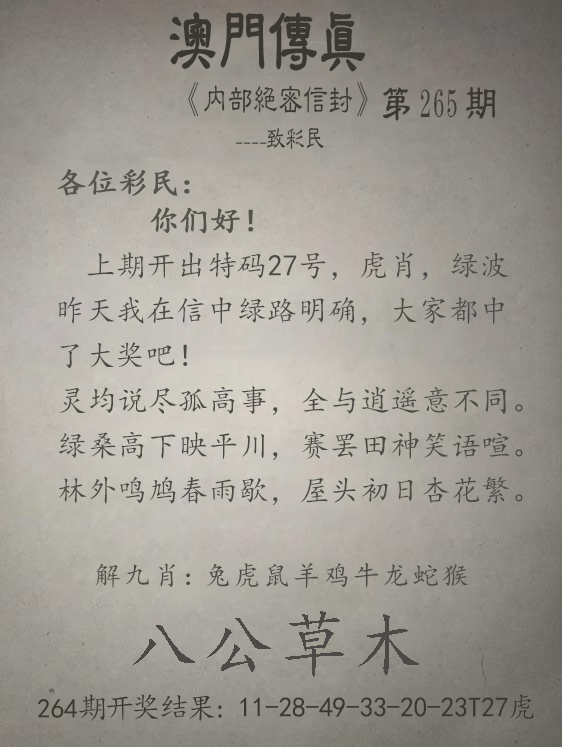 澳門傳眞
《内部絕密信封》第265期
----致彩民
各位彩民：
你们好！
上期开出特码27号，虎肖，绿波
昨天我在信中绿路明确，大家都中
了大奖吧！
灵均说尽孤高事，全与逍遥意不同。
绿桑高下映平川，赛罢田神笑语喧。
林外鸣鸠春雨歇，屋头初日杏花繁。
解九肖：兔虎鼠羊鸡牛龙蛇猴
八公草木
264期开奖结果：11-28-49-33-20-23T27虎